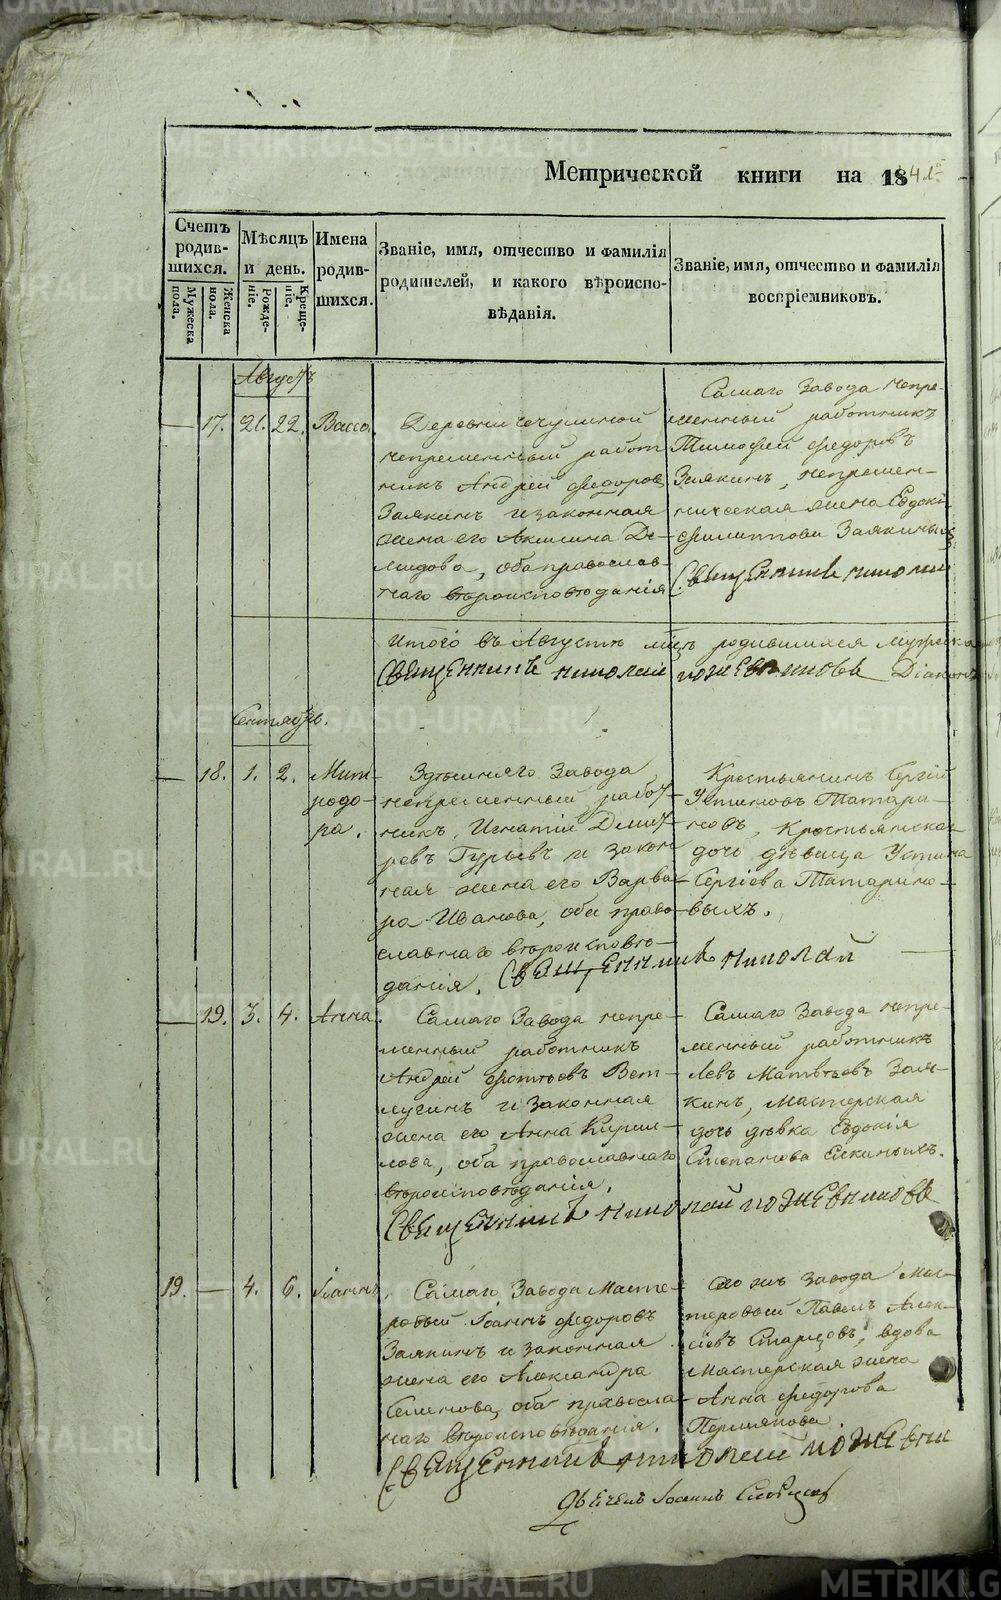 Метрической книги на 1841й
Счетъ родившихся.
Мужеска пола.
Женска пола.
Мѣсяцъ и день.
Рожденіе.
Крещеніе.
Имена родившихся.
Званіе, имя, отчество и фамилія
родителей, и какого вѣроиспо-
вѣданія.
Званіе, имя, отчество и фамилія
воспріемниковъ.
Августъ
— 17. 21. 22. Васса.
Деревни
непременный работ
никъ Андрей Федоровъ
Заякинъ и законная
жена его Акилина Де-
мидова, оба православ-
наго вѣроисповѣданія
Самаго Завода непре-
менный работникъ
Тимофей Федоровъ
Заякинъ, непремен-
ническая жена Евдокі
Филиппова Заякиныхъ
Священникъ Николай
Итого въ Августѣ м-цѣ родившихся мужеска
Священникъ Николай Ножевниковъ Діаконъ
Сентябрь.
— 18. 1. 2. Мит-
родо-
ра.
Здѣшняго Завода
непременный работ-
никъ, Игнатій Дмит-
ревъ Гурьевъ и закон
ная жена его Варва-
ра Иванова, оба право-
славнаго вѣроисповѣ-
данія. Священникъ Николай
Крестьянинъ Сергій
Устиновъ Татари-
новъ, Крестьянская
дочь дѣвица Устина
Сергіева Татарино-
выхъ.
— 19. 3. 4. Анна.
Самаго Завода непре-
менный работникъ
Андрей Фотѣевъ Вет-
лугинъ и законная
жена его Анна Кирил-
лова, оба православнаго
вѣроисповѣданія.
Самаго Завода непре-
менный работникъ
Левъ Матвѣевъ Зая-
кинъ, Мастерская
дочь дѣвка Евдокія
Степанова
Священникъ Николай Ножевниковъ
19. — 4. 6. Іоаннъ.
Самаго Завода Масте-
ровый Іоаннъ Федоровъ
Заякинъ и законная
жена его Александра
Семенова, оба правосла-
наго вѣроисповѣданія.
Завода Мас-
теровый Павелъ Алек-
сіевъ Старцовъ, вдова
Мастерская жена
Анна Федорова
Пермякова
Священникъ Николай Ножевни
Дьячекъ Іоаннъ
METRIKI.GASO-URAL.RU